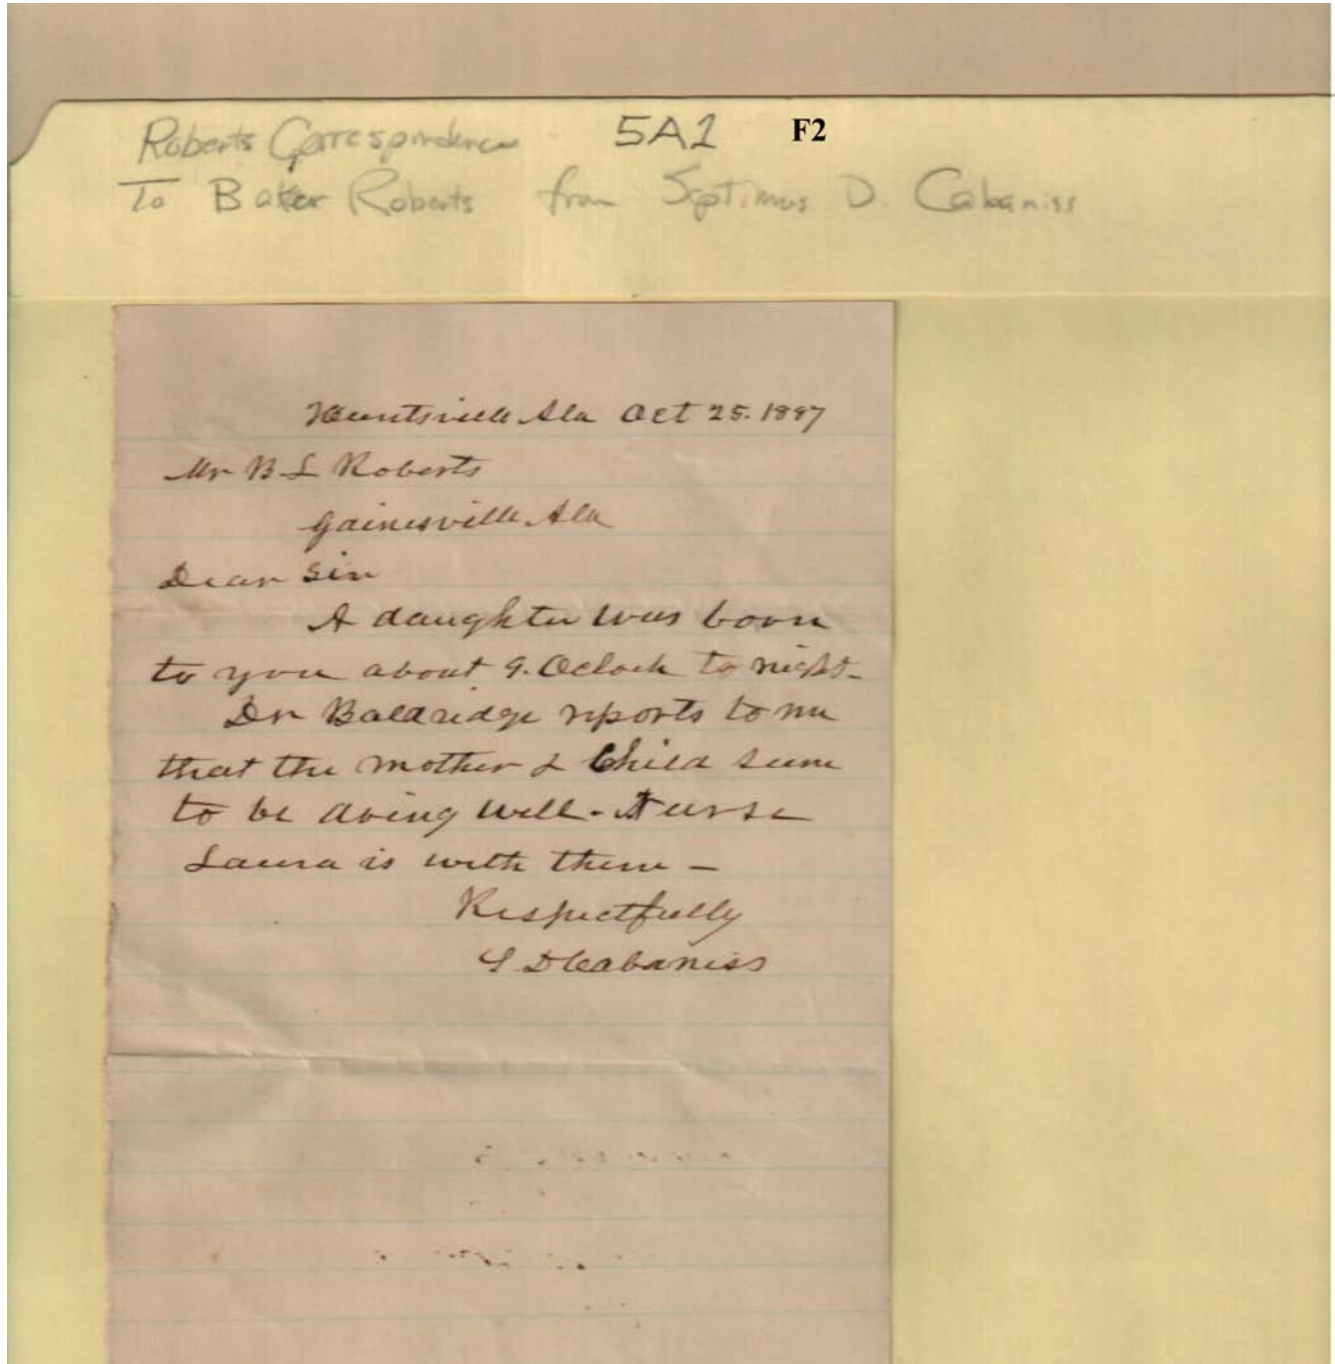 Roberts Correspondence 5A1 F2
To Baker Roberts from Septimus D. Cabaniss
Huntsville Ala Oct 25. 1887
Mr B L Roberts
Gainesville Ala
Dear Sir
A daughter was born
to you about 9. Oclock to night-
Dr Baldridge reports to me
that the mother & Child seem
to be doing well - Nurse
Laura is with them -
Respectfully
S D Cabaniss